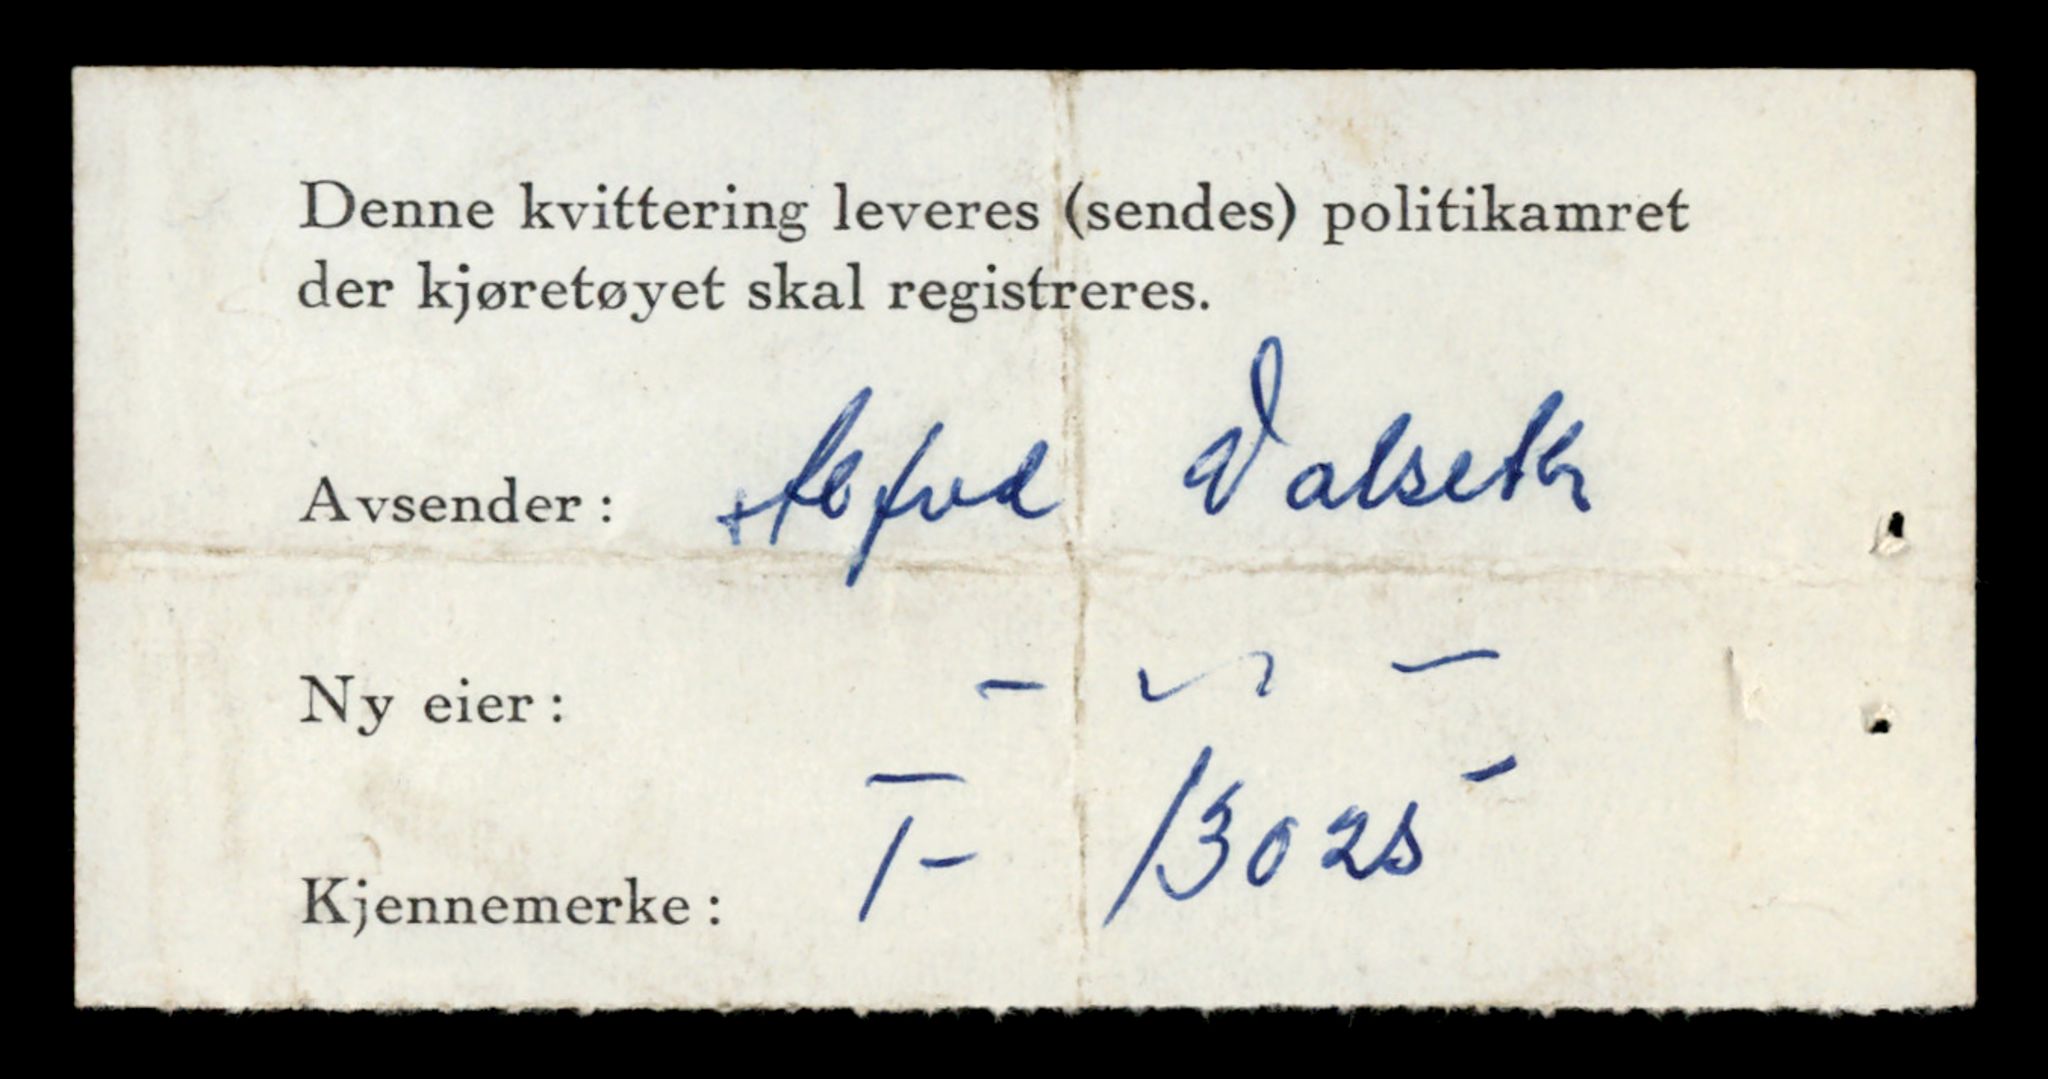 Denne kvittering leveres (sendes) politikamret
der kjøretøyet skal registreres.
Avsender: Valseth
Ny eier: – ʺ –
Kjennemerke: T- 13025